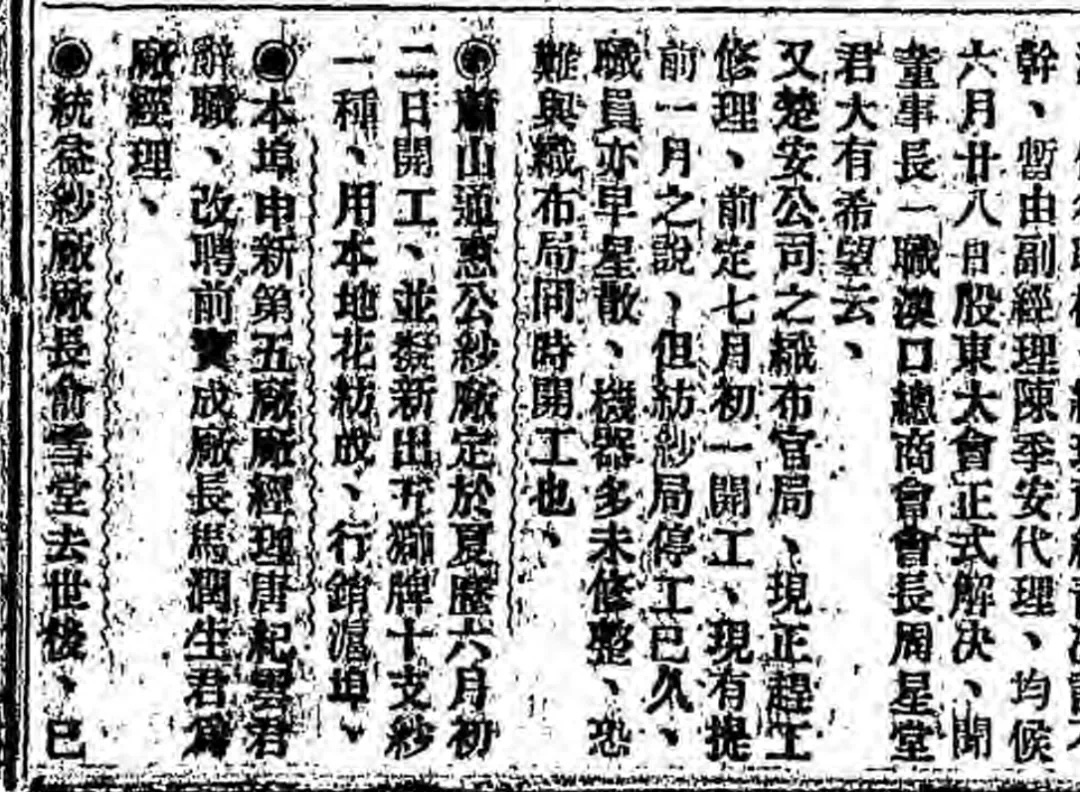 幹、暫由副經理陳季安代理、均候
六月廿八日股東大會正式解决、聞
董事長一職漢口總商會會長周星堂
君大有希望云、
又楚安公司之織布官局、現正趕工
修理、前定七月初一開工、現有提
前一月之說、但紡紗局停工已久、
職員亦早星散、機器多未修整、恐
難與織布局同時開工也、
◉蕭山通惠公紗廠定於夏歷六月初
二日開工、並發新出五獅牌十支紗
一種、用本地花紡成、行銷滬埠、
◉本埠申新第五廠廠經理唐紀雲君
辭職、改聘前寶成廠長馬潤生君爲
廠經理、
◉統益紗廠廠長俞雪堂去世後、已